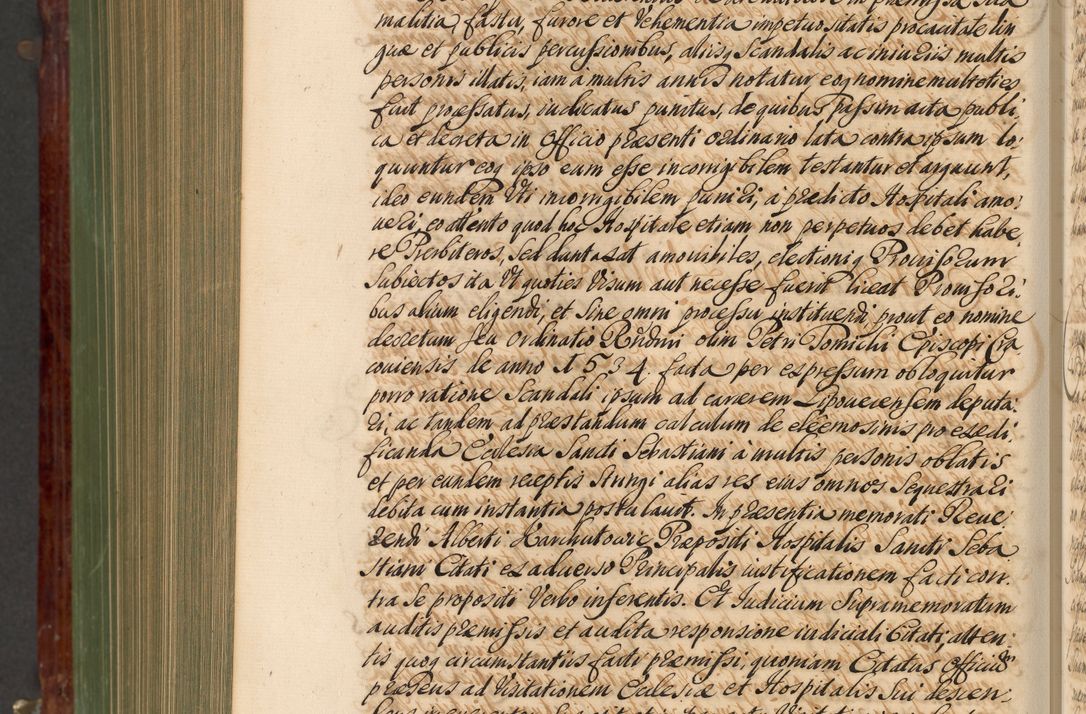 malitia, fastu, furore et vehementia impetuositatis procacitate lin
guæ et publicis percussionibus, aliisq scandalis ac iniuriis multis
personis illatis, iam a multis annis notatur eoq nomine multoties
fuit processatus, iudicatus punitus, de quibus passim acta publi
ca et decreta in officio præsenti ordinario lata contra ipsum lo,
quuntur eoq ipso eum esse incorrigibilem testantur et arguunt,
ideo eundem uti incorrigibilem puniri, a prædicto Hospitali amo,
ueri, eo attento quod hoc Hospitale etiam non perpetuos debet habe,
re Presbiteros, sed duntaxat amouibiles, electioniq Prouisorum
subiectos ita ut quoties visum aut necesse fuerit liceat Prouisori,
bus alium eligendi, et sine omni processu instituendi, prout eo nomine
decretum seu ordinatio Rndmi olim Petri Tomicki Episcopi Cra
couiensis de anno 1534. facta per expressum obloquitur
porro ratione scandali ipsum ad carcerem Lipouecensem deputa,
ri, ac tandem ad præstandum calculum de eleemosinis pro exedi,
ficanda Ecclesia Sancti Sebastiani a multis personis oblatis
et per eundem receptis iungi alias res eius omnes sequestrari
debita cum instantia postulauit. In præsentia memorati Reue,
rendi Alberti Karchutowic Præpositi Hospitalis Sancti Seba
stiani Citati ex aduerso Principalis iustificationem facti con,
tra se propositi verbo inferentis. Et Iudicium supramemoratum
auditis præmissis et audita responsione iudiciali Citati, atten,
tis quoq circumstantiis facti præmissi, quoniam Citatus Officium
præsens ad visitationem Ecclesiæ et Hospitalis sui descen,